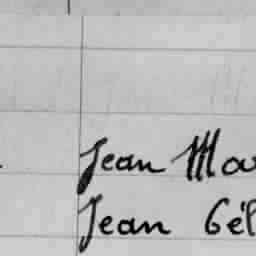 Jean Ma
Jean Gél